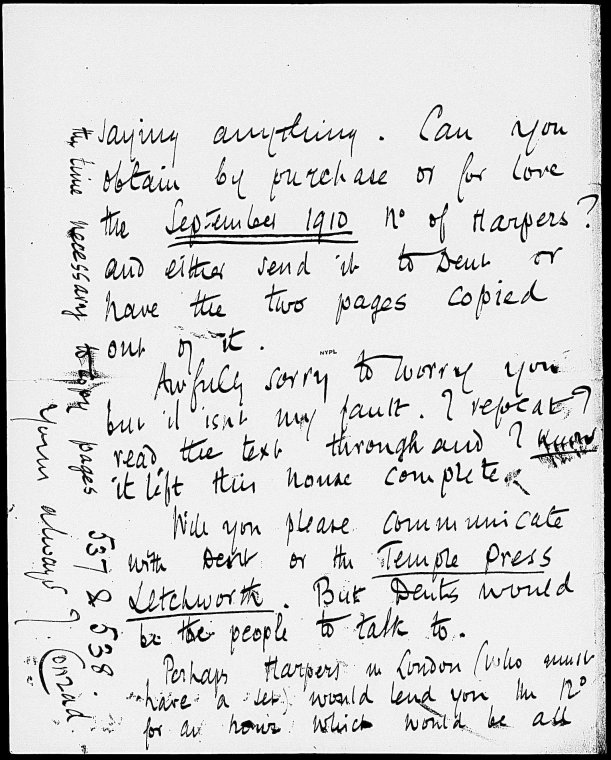 saying anything. Can you
obtain by purchase or for love
the September 1910 No of Harpers?
and either send it to Dent or
have the two pages copied
out of it.
NYPL
Awfully sorry to worry you
but it isnt my fault. I repeat I
read the text through and I know
it left this house complete.
Will you please communicate
with Dent or the Temple Press
Letchworth. But Dents would
be the people to talk to.
Perhaps Harpers in London (who must
have a set) would lend you the No
for an hour which would be all
the time necessary to copy pages 537 & 538.
Yours always J. Conrad.